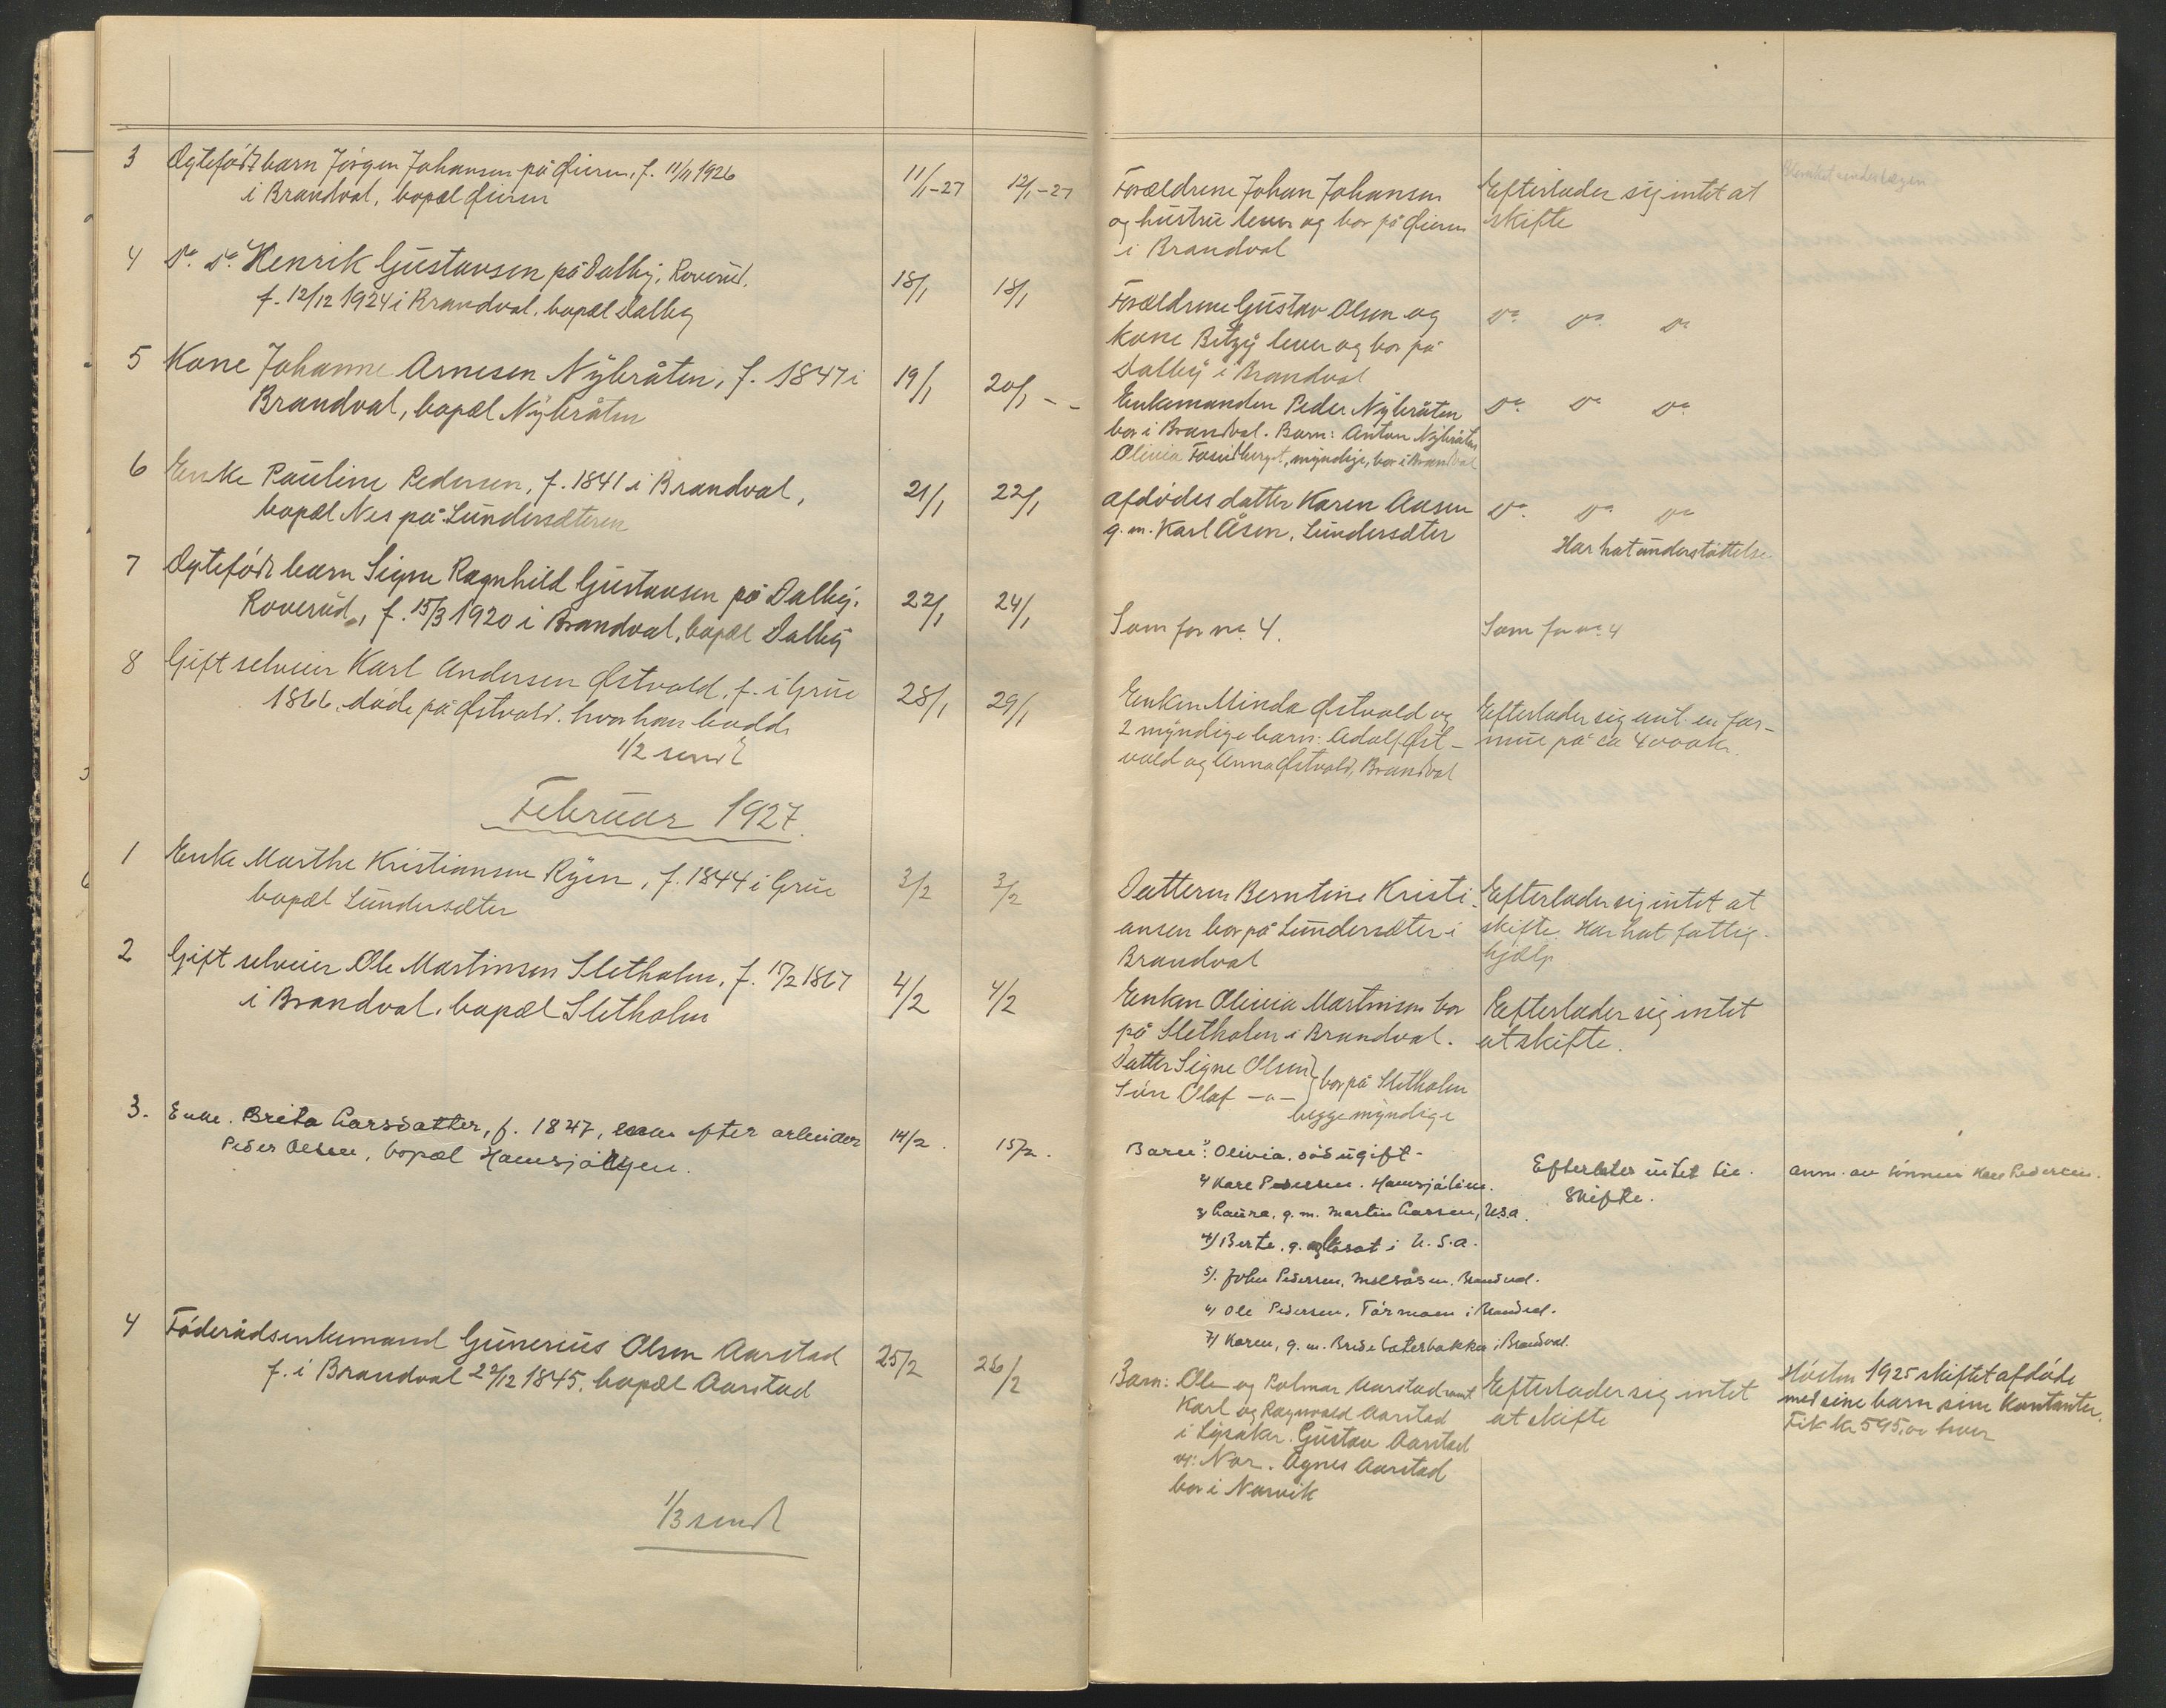 3 Ogtefødt barn Jörgen Johansen på Øieren, f. 11/11 1926
i Brandval, bopæl Øieren
11/1-27 12/1-27
Forældrene Johan Johansen
og hustru lever og bor på Øieren
i Brandval
Efterlader sig intet at
skifte
4 Do. Do. Henrik Gustavsen på Dalby, Roverud,
f. 12/12 1924 i Brandval, bopæl Dalby
18/1 18/1
Forældrene Gustav Olsen og
kone Betzy lever og bor på
Dalby i Brandval
Do. Do. Do
5 Kone Johanne Arnesen Nybråten, f. 1847 i
Brandval, bopæl Nybråten
19/1 20/1 - -
Enkemanden Peder Nybråten
bor i Brandval. Barn: Anton Nybråten
Olivia, myndige, bor i Brandval
Do. Do Do.
6 Enke Pauline Pedersen, f. 1841 i Brandval,
bopæl Nes på Lundersæteren
21/1 22/1
afdödes datter Karen Aasen
g. m. Karl Åsen, Lundersæter
Do. Do. Do
Har hat understöttelse
7 Ogtefödt barn Signe Ragnhild Gustavsen på Dalby,
Roverud, f. 15/3 1920 i Brandval, bopæl Dalby
22/1 24/1
Som for no. 4.
Som for no. 4
8 Gift selveier Karl Andersen Østvold, f. i Grue
1866, döde på Østvold, hvor han bodde
1/2 sendt
28/1 29/1
Enken Minda Østvold og
2 myndige barn: Adolf Øst-
vold og Anna Østvold, Brandval
Efterlader sig ant. en for-
mue på ca 4000 kr.
Februar 1927.
1 Enke Marthe Kristiansen Ryen, f. 1844 i Grue
bopæl Lundersæter
3/2 3/2
Datteren Berntine Kristi-
ansen bor på Lundersæter i
Brandval
Efterlader sig intet at
skifte. Har hat fattig-
hjælp
2 Gift selveier Ole Martinsen Sletholm, f. 17/2 1867
i Brandval, bopæl Sletholm
4/2 4/2
Enken Olivia Martinsen bor
på Sletholen i Brandval.
Datter Signe Olsen } bor på Sletholen
Sön Olaf -"-
begge myndige
Efterlader sig intet
at skifte.
3. Enke. Brita Larsdatter, f. 1847, enke efter arbeider
Peder Olsen, bopæl
14/2. 15/2.
Barn: 1) Olivia, död ugift-
2) Kare Pedersen.
3) Laura, g. m. Martin Larsen, U.S.a.
4) Berte, g. og bosat i U.S.a.
5). John Pedersen, Brandval.
6) Ole Pedersen, i Brandval.
7) Karen, g. m. i Brandval.
Efterlater intet til
skifte.
anm. av sönnen Kare Pedersen.
4 Föderådsenkemand Gunerius Olsen Aarstad
f. i Brandval 22/12 1845, bopæl Aarstad
25/2 26/2
Barn: Ole og Palmar Aarstad samt
Karl og Ragnvald Aarstad
i Lysaker. Gustav Aarstad
v: Nor. Agnes Aarstad
bor i Narvik
Efterlader sig intet
at skifte
Hösten 1925 skiftet afdöde
med sine barn sine kontanter.
Fik kr 595,00 hver
1/3 sendt